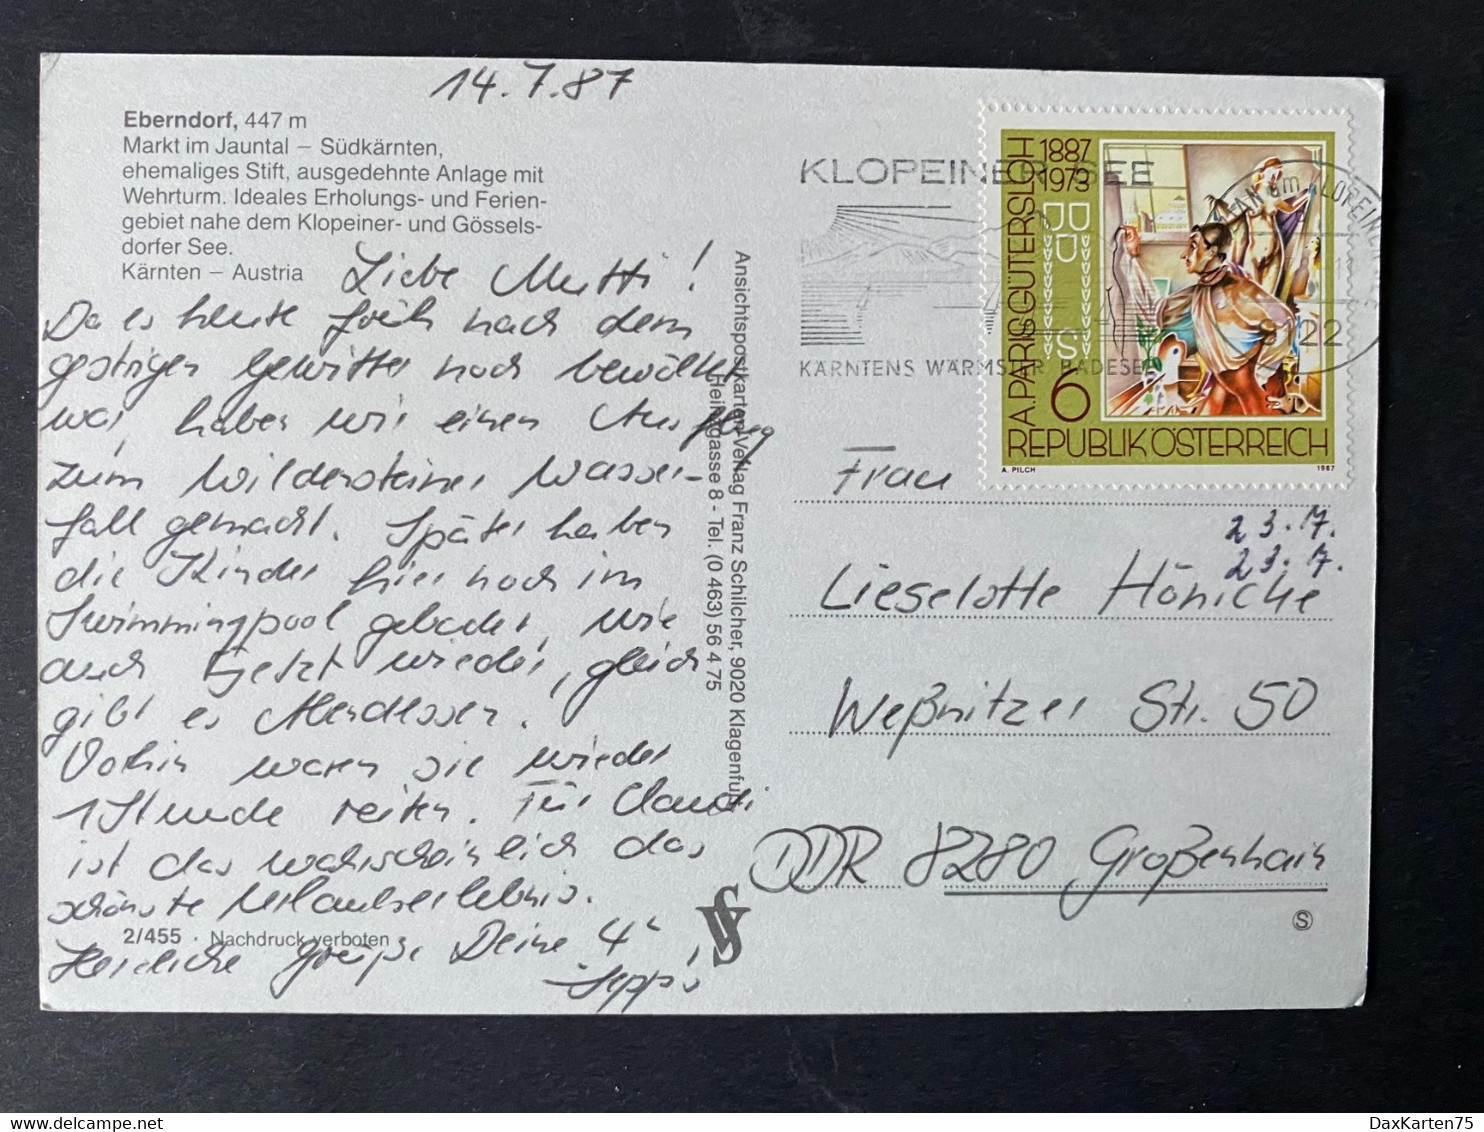 14.7.87
Eberndorf, 447 m
Markt im Jauntal – Südkärnten,
ehemaliges Stift, ausgedehnte Anlage mit
Wehrturm. Ideales Erholungs- und Ferien-
gebiet nahe dem Klopeiner- und Gössels-
dorfer See.
Kärnten – Austria
Liebe Mutti!
Da es heute früh nach dem
gestrigen Gewitter noch bewölkt
war, haben wir einen Ausflug
zum Wildensteiner Wasser-
fall gemacht. Später haben
die Kinder hier noch im
Swimmingpool gebadet, wie
auch jetzt wieder, gleich
gibt es Abendessen.
Vorhin waren sie wieder
1 Stunde reiten. Für Claudi
ist das wahrscheinlich das
schönste Urlaubserlebnis.
2/455 · Nachdruck verboten
Herzliche Grüße Deine 4
Ansichtspostkarten-Verlag Franz Schilcher, 9020 Klagenfurt
8 - Tel. (0 463) 56 4 75
VS
KLOPEINER SEE
KÄRNTENS WÄRMSTER BADESEE
AM KLOPEINER
9122
A. PARIS GÜTERSLOH
1887
1973
6
S
REPUBLIK ÖSTERREICH
A. PILCH
1987
Frau
23.7.
23.7.
Lieselotte Hönicke
Weßnitzer Str. 50
DDR 8280 Großenhain
S
DaxKarten75